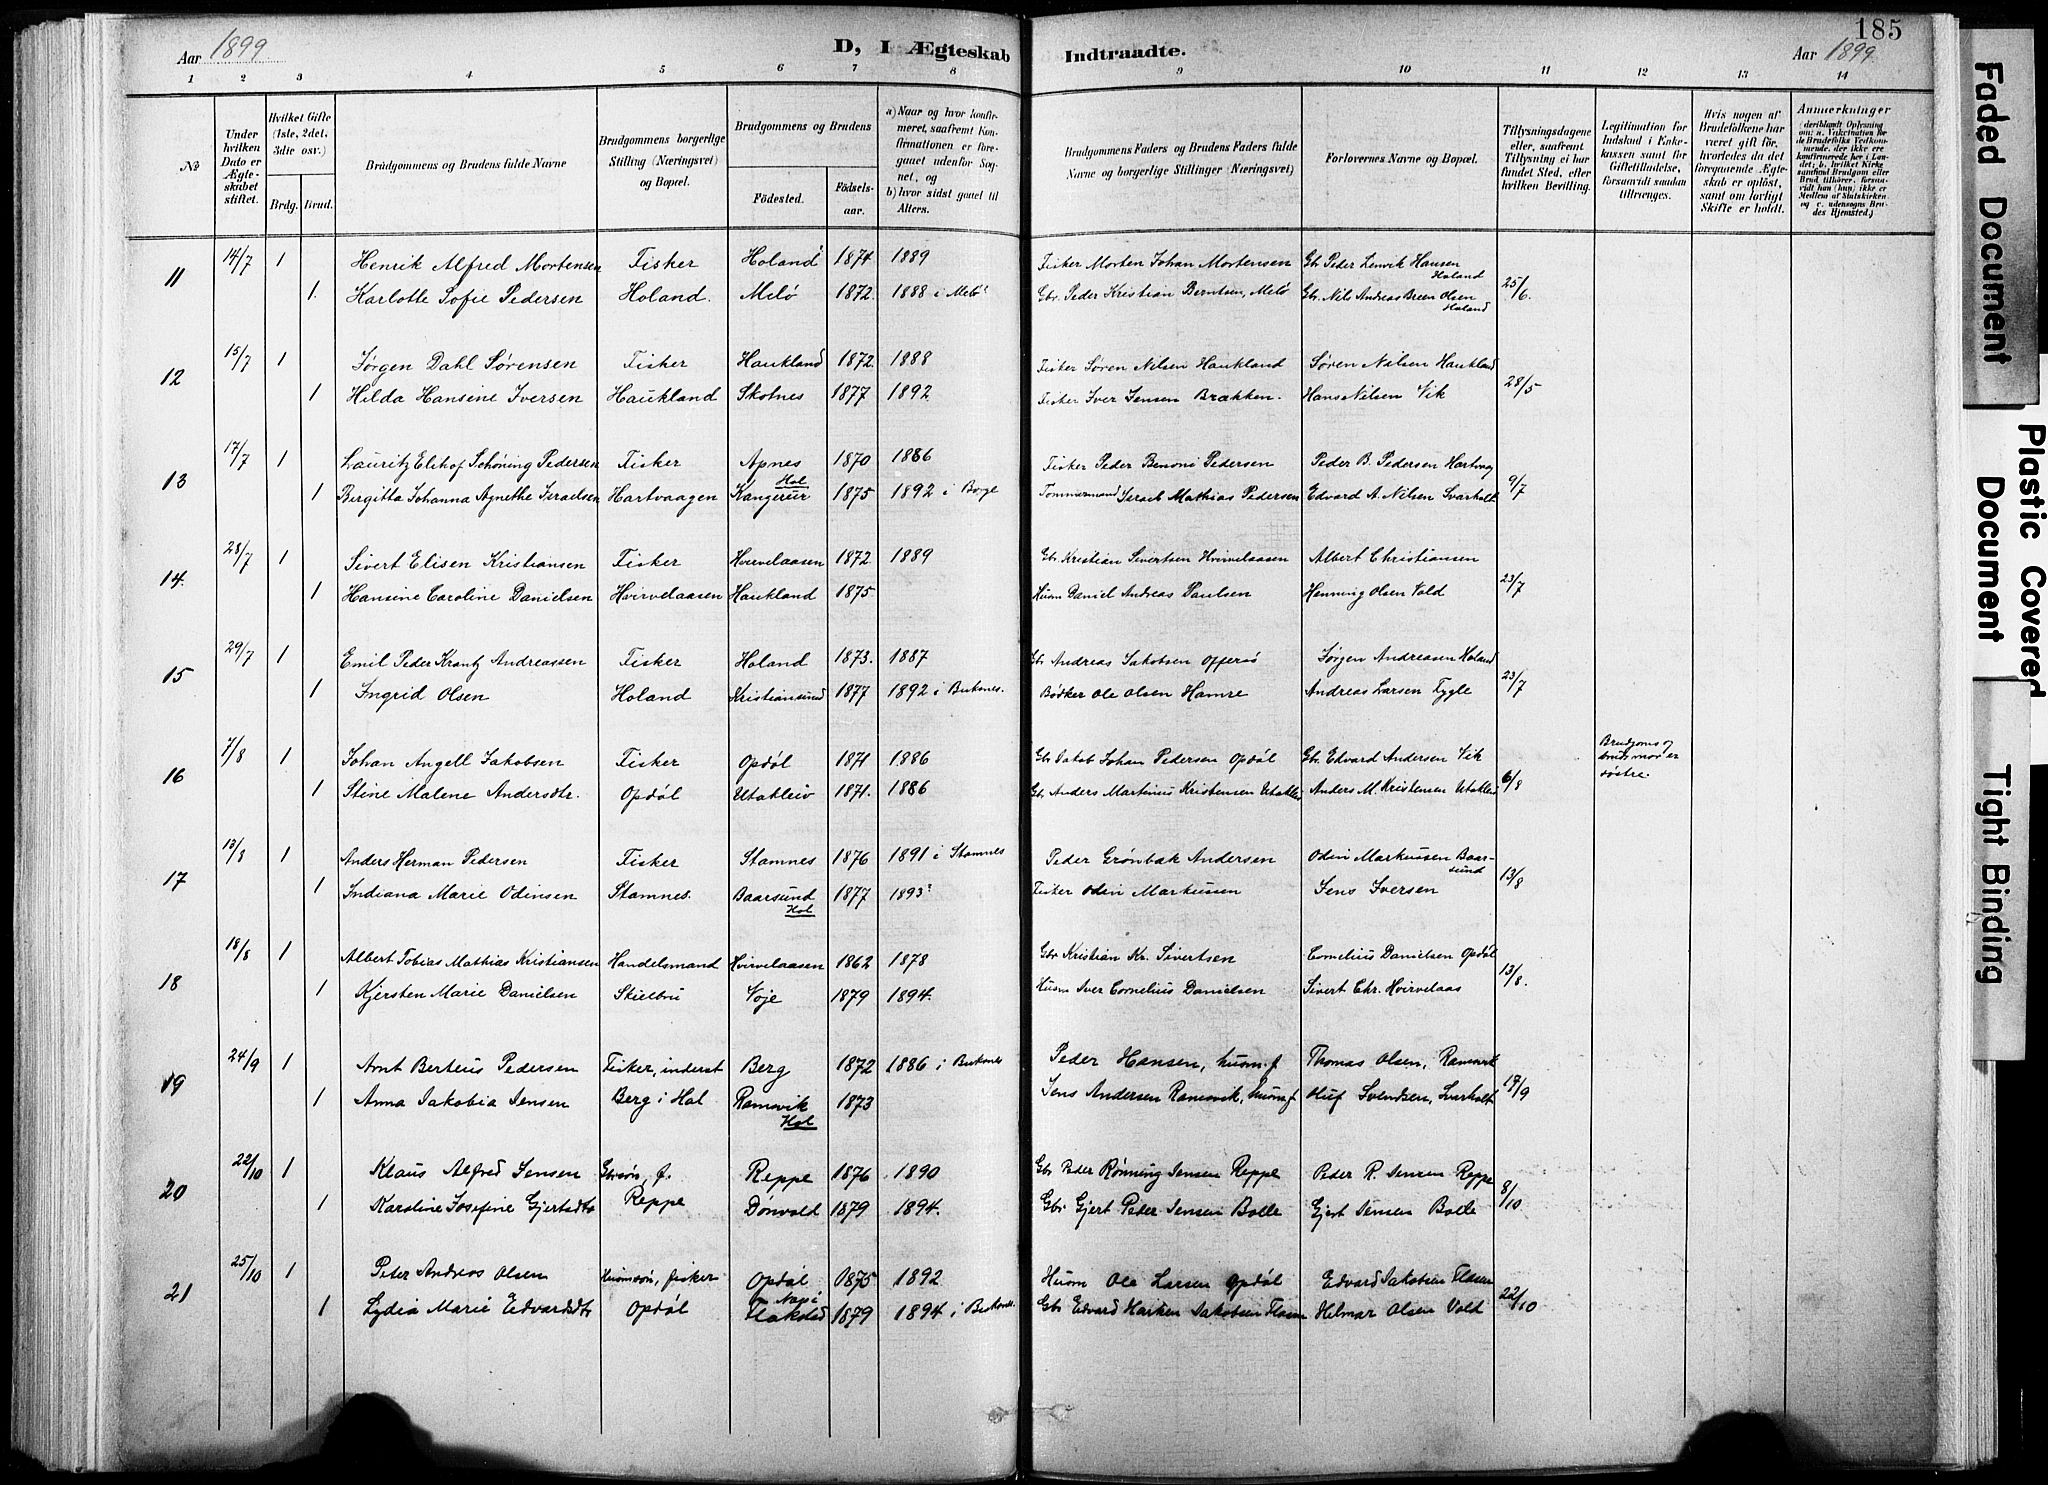 185
Aar 1899
D, I Ægteskab Indtraadte.
Aar 1899
1 2 3 4 5 6 7 8 9 10 11 12 13 14
№
Under hvilken Dato er Ægteskabet stiftet.
Hvilket Gifte (1ste, 2det, 3die osv.)
Brdg. Brud.
Brudgommens og Brudens fulde Navne
Brudgommens borgerlige Stilling (Næringsvei) og Bopæl.
Brudgommens og Brudens
Fødested. Fødselsaar.
a) Naar og hvor konfirmeret, saafremt Konfirmationen er foregaaet udenfor Sognet, og
b) hvor sidst gaaet til Alters.
Brudgommens Faders og Brudens Faders fulde Navne og borgerlige Stillinger (Næringsvei)
Forlovernes Navne og Bopæl.
Tillysningsdagene eller, saafremt Tillysning ei har fundet Sted, efter hvilken Bevilling.
Legitimation for Indskud i Enkekassen samt for Giftetilladelse, forsaavidt saadan tiltrænges.
Hvis nogen af Brudefolkene har været gift før, hvorledes da det foregaaende Ægteskab er opløst, samt om lovligt Skifte er holdt.
Anmerkninger
11 14/7 1 Henrik Alfred Mortensen Fisker Holand 1874 1889 Fisker Morten Johan Mortensen Gbr Peder Lenvik Hansen Holand 25/6
1. Karlotte Sofie Pedersen Holand. Melö 1872. 1888 i Melö Gbr. Peder Kristian Berntsen, Melö Gbr. Nils Andreas Breen Olsen Holand
12 15/7 1 Jørgen Dahl Sørensen Fisker Haukland 1872. 1888 Fisker Søren Nilsen Haukland Søren Nilsen Haukland 28/5
1 Hilda Hansine Iversen Haukland Skotnes 1877 1892 Fisker Iver Jensen Brækken. Hans Nilsen Vik
13 17/7 1 Lauritz Elihof Schöning Pedersen Fisker Apnes 1870 1886 Fisker Peder Benoni Pedersen Peder B. Pedersen Hartvag 9/7
1 Birgitta Johanna Agnethe Israelsen Hartvaagen Kangerur Hol 1875 1892 i Borge Tømmermand Israel Mathias Pedersen Edvard A. Nilsen Svarholt
14. 28/7 1 Sivert Elisen Kristiansen Fisker Hvirvelaasen 1872. 1889 Gbr Kristian Sivertsen Hvirvelaasen Albert Christiansen 23/7
1 Hansine Caroline Danielsen Hvirvelaasen Haukland 1875 Husm Daniel Andreas Paulsen Henning Olsen Vold
15 29/7 1 Emil Peder Krantz Andreassen Fisker Holand 1873. 1887 Gbr Andreas Jakobsen Offersö Jørgen Andreasen Holand 23/7
1 Ingrid Olsen Holand Kristiansund 1877 1892 i Buksnes. Bødker Ole Olsen Hamre Andreas Larsen Fygle
16 7/8 1 Johan Angell Jakobsen Fisker Opdöl 1871 1886 Gbr Jakob Johan Pedersen Opdöl Gbr. Edvard Andersen Vik 6/8 Brudgoms og bruds mor er söstre.
1 Stine Malene Andersdtr. Opdöl Utakleiv 1871. 1886 Gbr Anders Martinius Kristensen Utakleiv Anders M. Kristensen Utakleiv
17 13/8 1 Anders Herman Pedersen Fisker Stamnes 1876 1891 i Stamnes Peder Grönbæk Andersen Odin Markussen Baarsund 13/8
1 Indiana Marie Odinsen Stamnes. Baarsund Hol 1877 1893 Fisker Odin Markussen Jens Iversen
18 18/8 1 Albert Tobias Mathias Kristiansen Handelsmand Hvirvelaasen 1862 1878 Gbr Kristian Kr. Sivertsen Cornelius Danielsen Opdöl 13/8.
1 Kjersten Marie Danielsen Skielbru Voje 1879 1894. Husm Iver Cornelius Danielsen Sivert Chr. Hvirvelaas
19 24/9 1 Arnt Berteus Pedersen Fisker, inderst Berg 1872 1886 i Buksnes Peder Hansen, husm. f Thomas Olsen, Ramsvik 17/9
1 Anna Jakobia Jensen Berg i Hol Ramsvik Hol 1873 Jens Andersen Ramsvik, husm. f Oluf Svendsen, Svarholt
20 22/10 1 Klaus Alfred Jensen Gbrsön, f. Reppe 1876 1890 Gbr Peder Rönning Jensen Reppe Peder R. Jensen Reppe 8/10
1 Karoline Josefine Gjertsdtr Reppe Dönvold 1879 1894. Gbr Gjert Peder Jensen Bolle Gjert Jensen Bolle
21 25/10 1 Peter Andreas Olsen Husmsön, fisker Opdöl 1875 1892 Husm Ole Larsen Opdöl Edvard Jakobsen 22/10
1 Lydia Marie Edvardsdtr Opdöl Nap i Flakstad 1879 1894 i Buksnes. Gbr Edvard Jakobsen Helmar Olsen Vold
Faded Document
Plastic Covered Document
Tight Binding